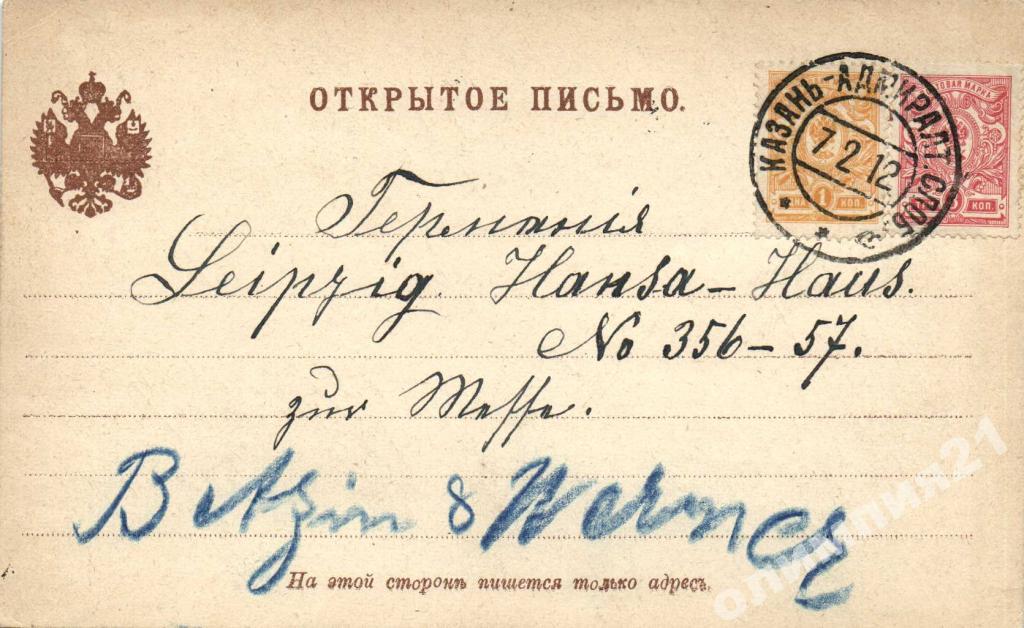 ОТКРЫТОЕ ПИСЬМО.
КАЗАНЬ-АДМИРАЛТ. СЛОБ.
7 2 12
1 КОП.
КОП.
Германія
Leipzig Hansa-Haus.
No 356-57.
zur Messe.
&
На этой сторонѣ пишется только адресъ.
олимпия21